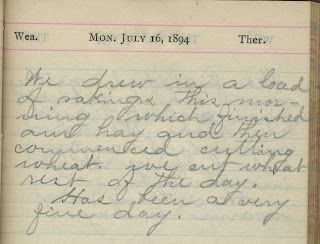 Wea. MON. JULY 16, 1894 Ther.
We drew in a load
of rakings this mor-
ning which finished
our hay and then
commenced cutting
wheat. we cut wheat
rest of the day.
Has been a very
fine day.